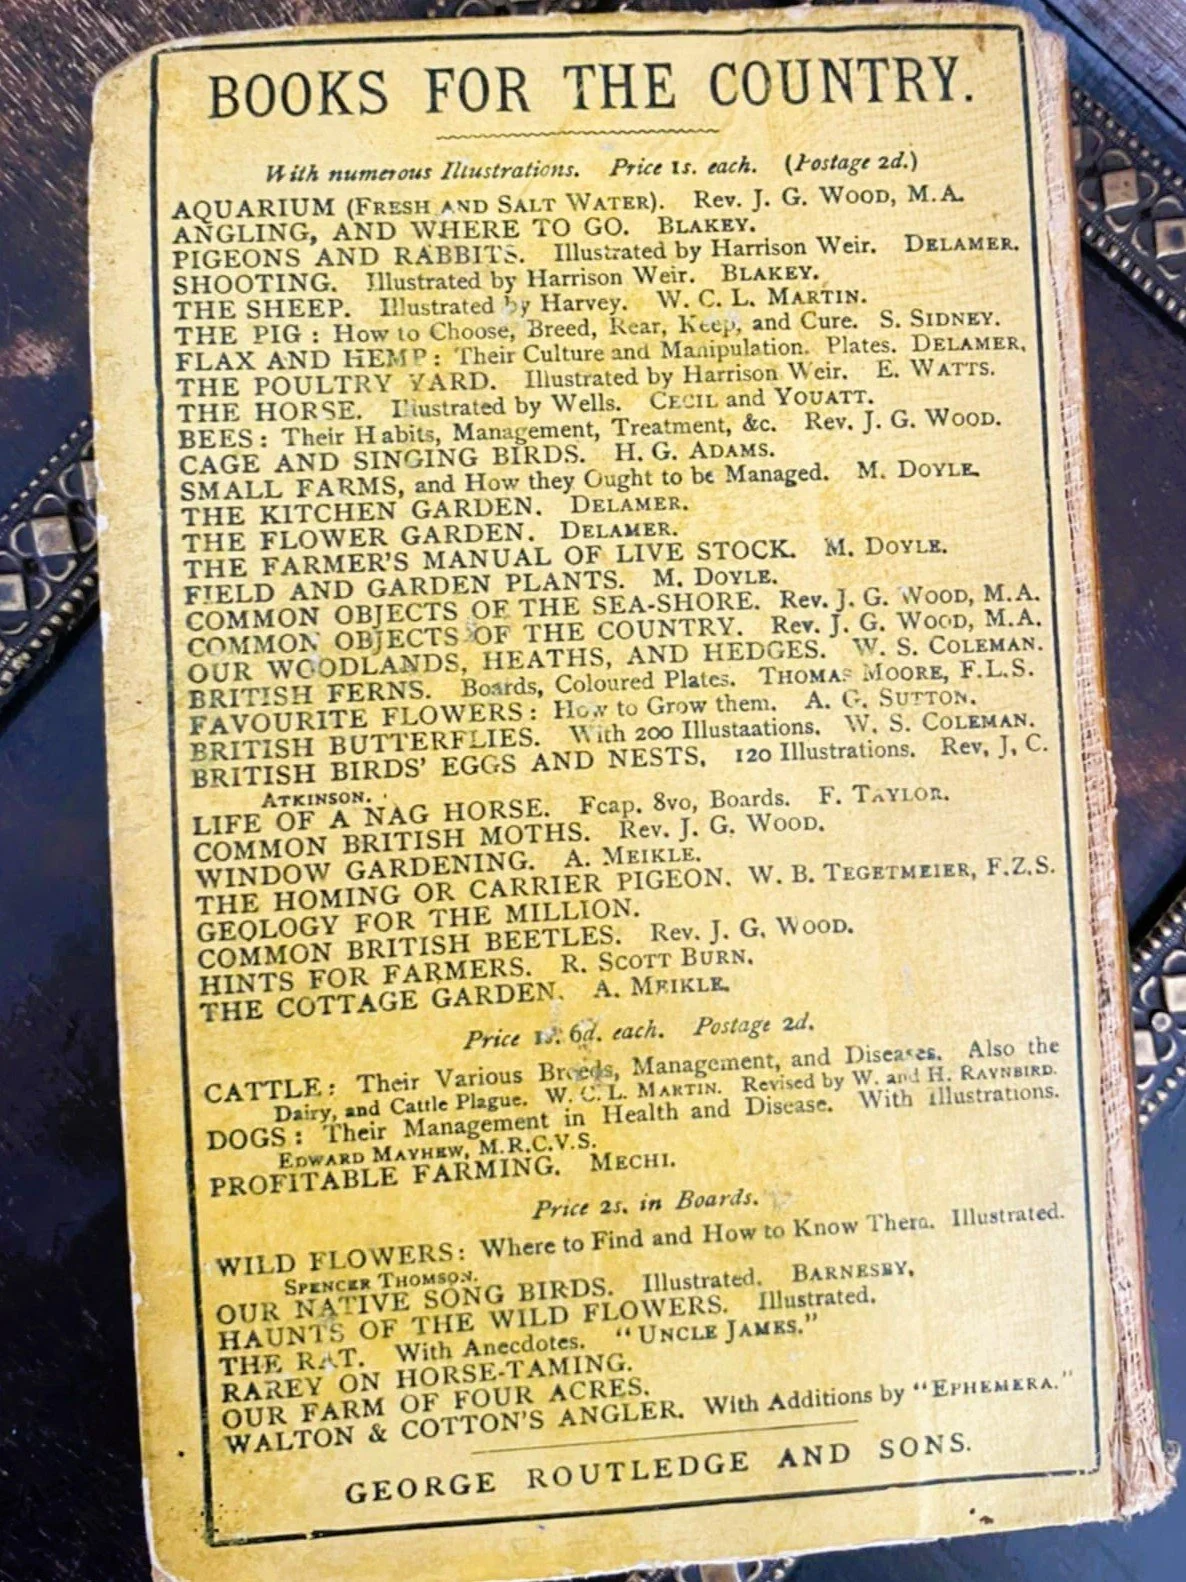 BOOKS FOR THE COUNTRY.
With numerous Illustrations. Price 1s. each. (Postage 2d.)
AQUARIUM (FRESH AND SALT WATER). Rev. J. G. WOOD, M.A.
ANGLING, AND WHERE TO GO. BLAKEY.
PIGEONS AND RABBITS. Illustrated by Harrison Weir. DELAMER.
SHOOTING. Illustrated by Harrison Weir. BLAKEY.
THE SHEEP. Illustrated by Harvey. W. C. L. MARTIN.
THE PIG: How to Choose, Breed, Rear, Keep, and Cure. S. SIDNEY.
FLAX AND HEMP: Their Culture and Manipulation. Plates. DELAMER.
THE POULTRY YARD. Illustrated by Harrison Weir. E. WATTS.
THE HORSE. Illustrated by Wells. CECIL and YOUATT.
BEES: Their Habits, Management, Treatment, &c. Rev. J. G. WOOD.
CAGE AND SINGING BIRDS. H. G. ADAMS.
SMALL FARMS, and How they Ought to be Managed. M. DOYLE.
THE KITCHEN GARDEN. DELAMER.
THE FLOWER GARDEN. DELAMER.
THE FARMER'S MANUAL OF LIVE STOCK. M. DOYLE.
FIELD AND GARDEN PLANTS. M. DOYLE.
COMMON OBJECTS OF THE SEA-SHORE. Rev. J. G. WOOD, M.A.
COMMON OBJECTS OF THE COUNTRY. Rev. J. G. WOOD, M.A.
OUR WOODLANDS, HEATHS, AND HEDGES. W. S. COLEMAN.
BRITISH FERNS. Boards, Coloured Plates. THOMAS MOORE, F.L.S.
FAVOURITE FLOWERS: How to Grow them. A. G. SUTTON.
BRITISH BUTTERFLIES. With 200 Illustaations. W. S. COLEMAN.
BRITISH BIRDS' EGGS AND NESTS. 120 Illustrations. Rev. J. C.
ATKINSON.
LIFE OF A NAG HORSE. Fcap. 8vo, Boards. F. TAYLOR.
COMMON BRITISH MOTHS. Rev. J. G. WOOD.
WINDOW GARDENING. A. MEIKLE.
THE HOMING OR CARRIER PIGEON. W. B. TEGETMEIER, F.Z.S.
GEOLOGY FOR THE MILLION.
COMMON BRITISH BEETLES. Rev. J. G. WOOD.
HINTS FOR FARMERS. R. SCOTT BURN.
THE COTTAGE GARDEN. A. MEIKLE.
Price 1s. 6d. each. Postage 2d.
CATTLE: Their Various Breeds, Management, and Diseases. Also the
Dairy, and Cattle Plague. W. C. L. MARTIN. Revised by W. and H. RAYNBIRD.
DOGS: Their Management in Health and Disease. With Illustrations.
EDWARD MAYHEW, M.R.C.V.S.
PROFITABLE FARMING. MECHI.
Price 2s. in Boards.
WILD FLOWERS: Where to Find and How to Know Them. Illustrated.
SPENCER THOMSON.
OUR NATIVE SONG BIRDS. Illustrated. BARNESBY.
HAUNTS OF THE WILD FLOWERS. Illustrated.
THE RAT. With Anecdotes. "UNCLE JAMES."
RAREY ON HORSE-TAMING.
OUR FARM OF FOUR ACRES.
WALTON & COTTON'S ANGLER. With Additions by "EPHEMERA."
GEORGE ROUTLEDGE AND SONS.